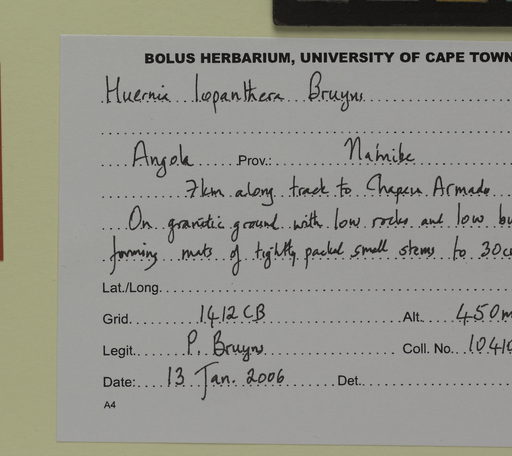 BOLUS HERBARIUM, UNIVERSITY OF CAPE TOWN
Huernia lopanthera Bruyns
Angola Prov.: Namibe
7km along track to Chapeu Armado
On granitic ground with low rocks and low bu
forming mats of tightly packed small stems to 30c
Lat./Long.
Grid 1412CB Alt. 450m
Legit. P. Bruyns Coll. No. 1041
Date: 13 Jan. 2006 Det.
A4